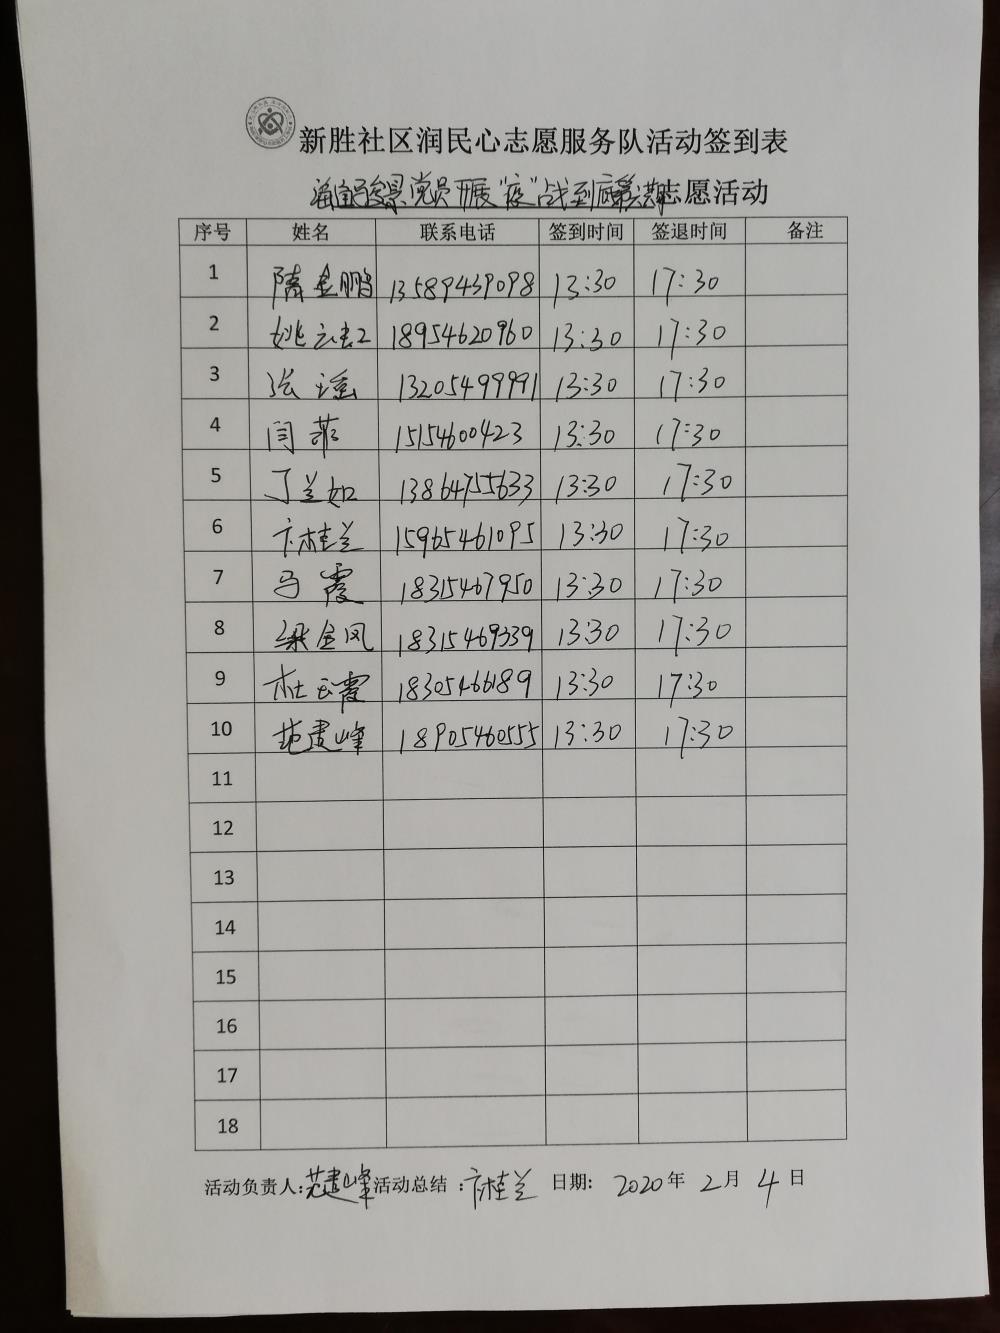 新胜社区润民心志愿服务队活动签到表
党员开展"疫"战到底志愿活动
序号 姓名 联系电话 签到时间 签退时间 备注
1 隋金鹏 13589439098 13:30 17:30
2 姚云红 18954620960 13:30 17:30
3 张瑶 13205499991 13:30 17:30
4 闫菲 15154600423 13:30 17:30
5 丁兰如 13864755633 13:30 17:30
6 卞桂兰 15965461095 13:30 17:30
7 马霞 18315467950 13:30 17:30
8 梁金凤 18315469339 13:30 17:30
9 杜玉霞 18305466189 13:30 17:30
10 范建峰 18905460555 13:30 17:30
11
12
13
14
15
16
17
18
活动负责人:范建峰 活动总结:卞桂兰 日期: 2020年2月4日